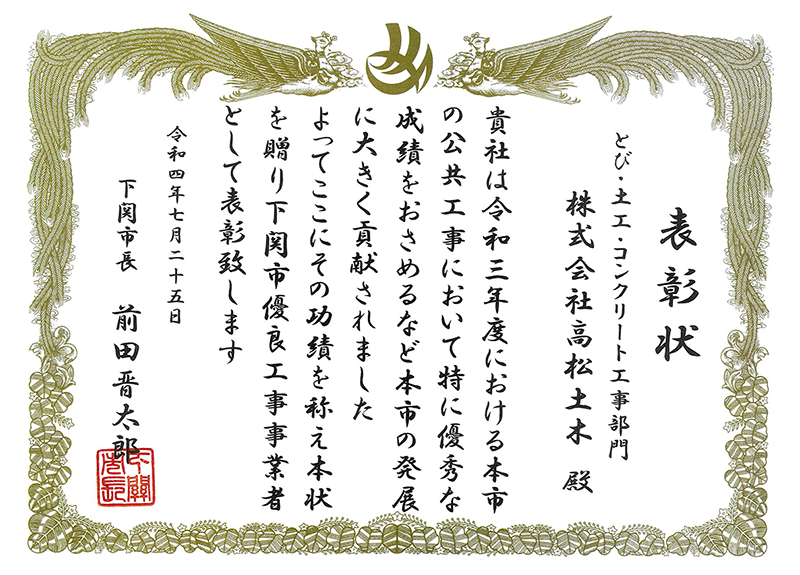 表彰状
とび・土工・コンクリート工事部門
株式会社高松土木 殿
貴社は令和三年度における本市
の公共工事において特に優秀な
成績をおさめるなど本市の発展
に大きく貢献されました
よってここにその功績を称え本状
を贈り下関市優良工事事業者
として表彰致します
令和四年七月二十五日
下関市長 前田晋太郎